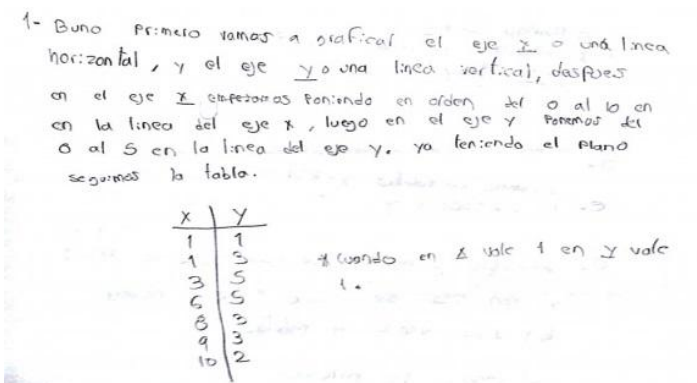 1- Buno Primero vamos a graficar el eje x o una linea
horizontal, y el eje y o una linea vertical, despues
en el eje x empezamos Poniendo en orden del 0 al 10 en
en la linea del eje x, luego en el eje y Ponemos del
0 al 5 en la linea del eje y. ya teniendo el Plano
seguimos la tabla.
x y
1 1
1 3
3 5
6 5
8 3
9 3
10 2
* cuando en x vale 1 en y vale
1.